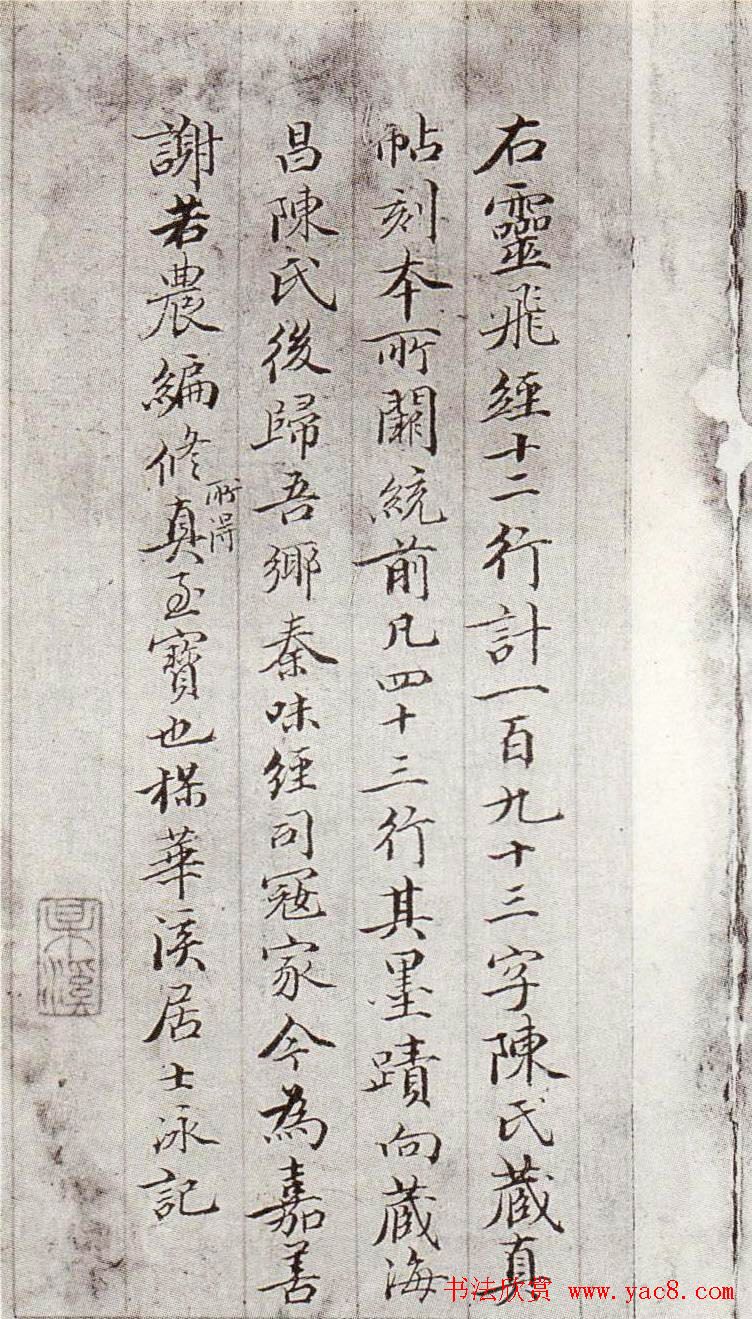 右靈飛經十二行計一百九十三字陳氏藏真
帖刻本所闕統前凡四十三行其墨蹟向藏海
昌陳氏後歸吾鄉秦味經司寇家今為嘉善
謝若農編修所得真至寶也楳華溪居士泳記
楳溪
书法欣赏 www.yac8.com